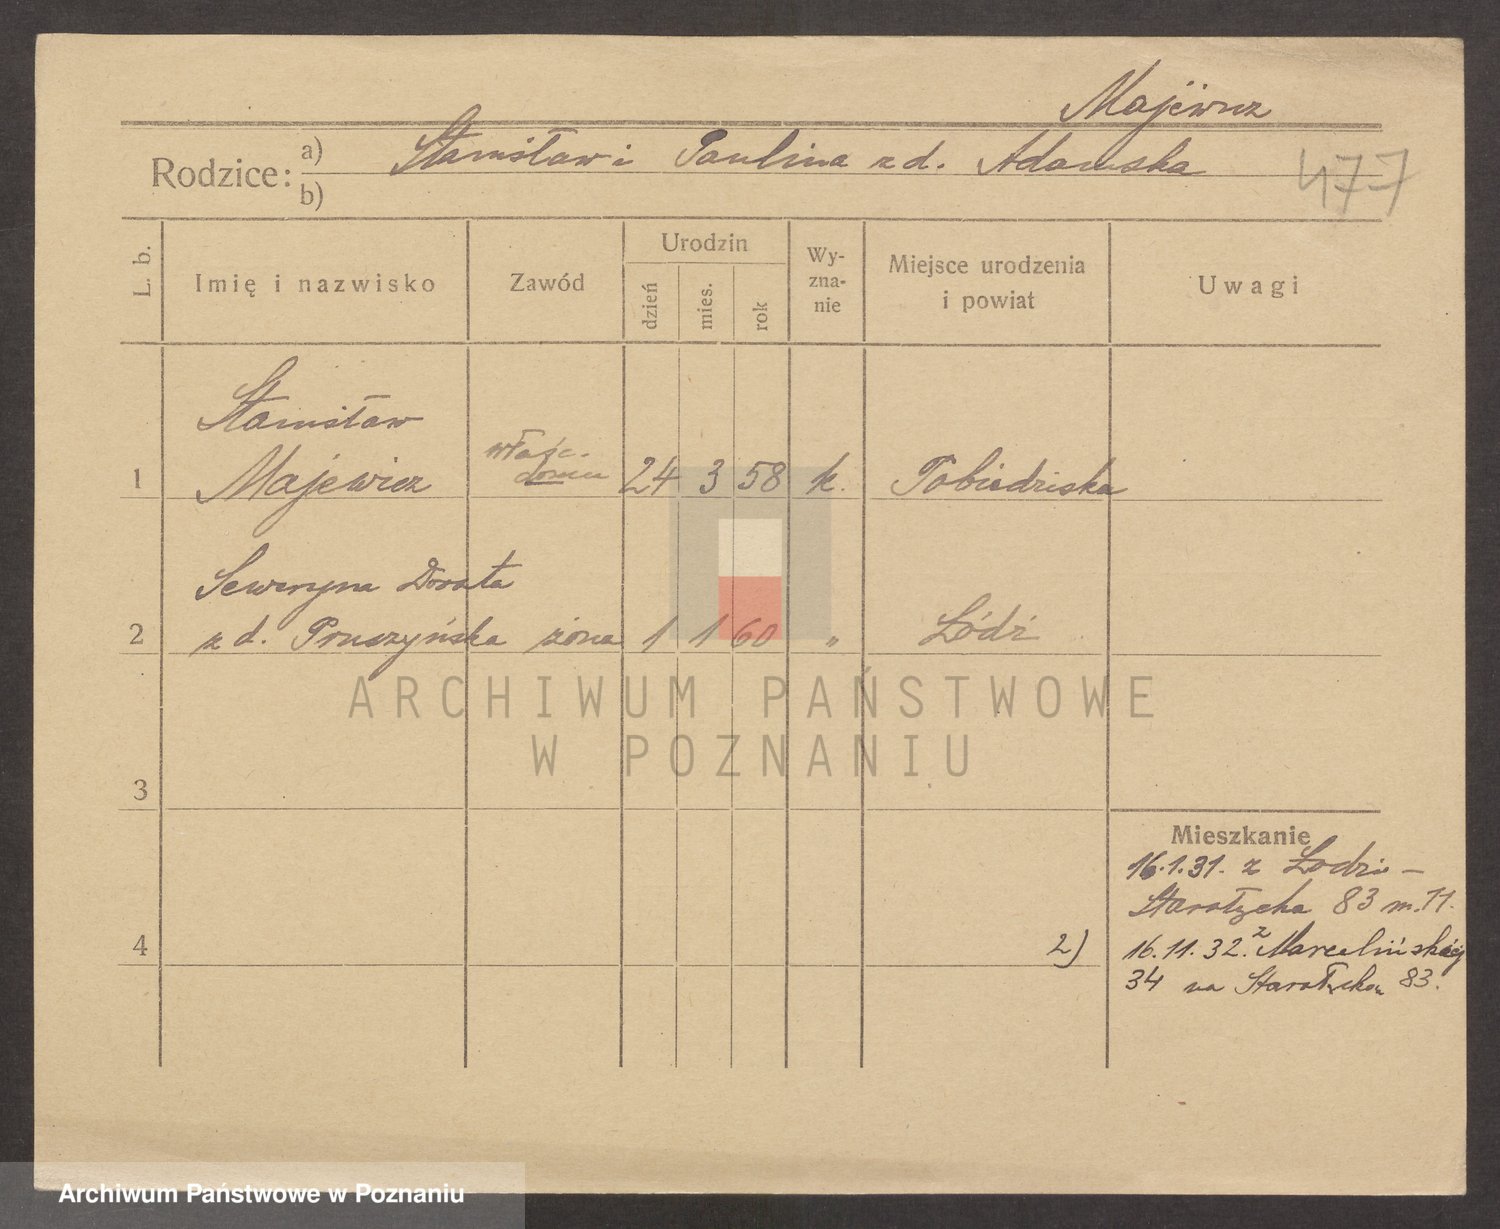 Majewicz
Rodzice: a) Stanisław i Paulina z d. Adamska
b)
477
L. b.
Imię i nazwisko
Zawód
Urodzin
dzień
mies.
rok
Wy-
zna-
nie
Miejsce urodzenia
i powiat
Uwagi
Stanisław
1 Majewicz właśc. domu 24 3 58 k. Pobiedziska
Seweryna Dorota
2 z d. Pruszyńska żona 1 1 60 „ Łódź
3
4
Mieszkanie
16.1.31. z Łodzi –
Starołęcka 83 m. 11.
2) 16.11.32. z Marcelińskiej
34 na Starołęcką 83.
ARCHIWUM PAŃSTWOWE
W POZNANIU
Archiwum Państwowe w Poznaniu